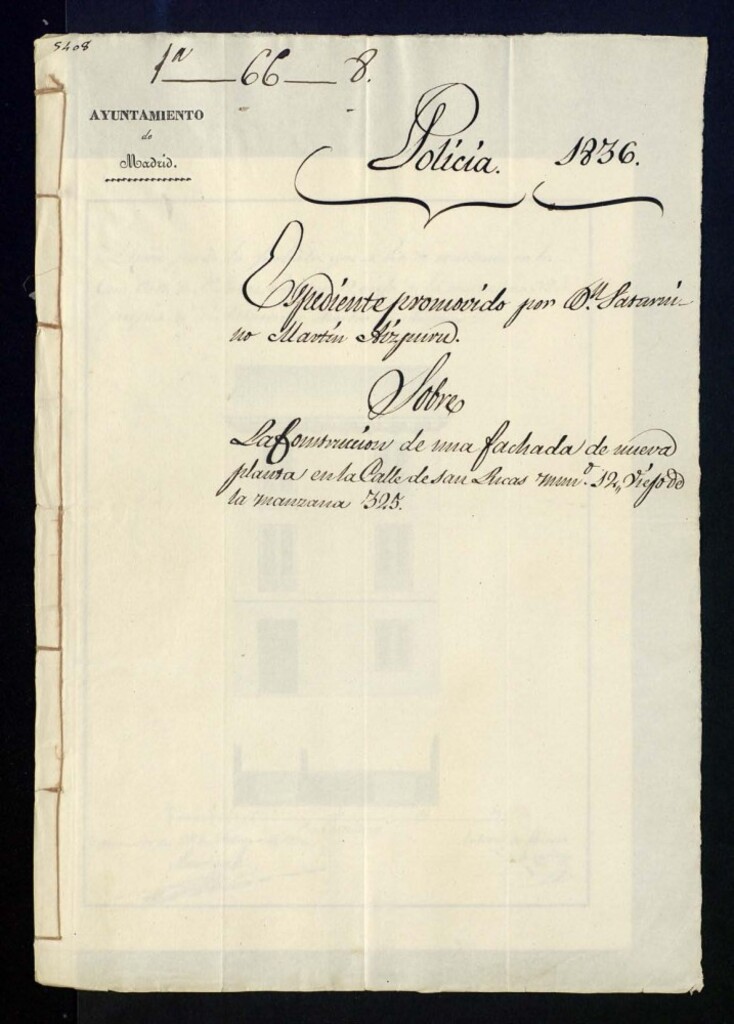 5408
1ª 66 8.
AYUNTAMIENTO
de
Madrid.
Policia. 1836.
Espediente promovido por Dn. Saturni-
no Martin Aizpuru.
Sobre
La Construccion de una fachada de nueva
planta en la Calle de san Lucas num.º 12, viejo de
la manzana 325.